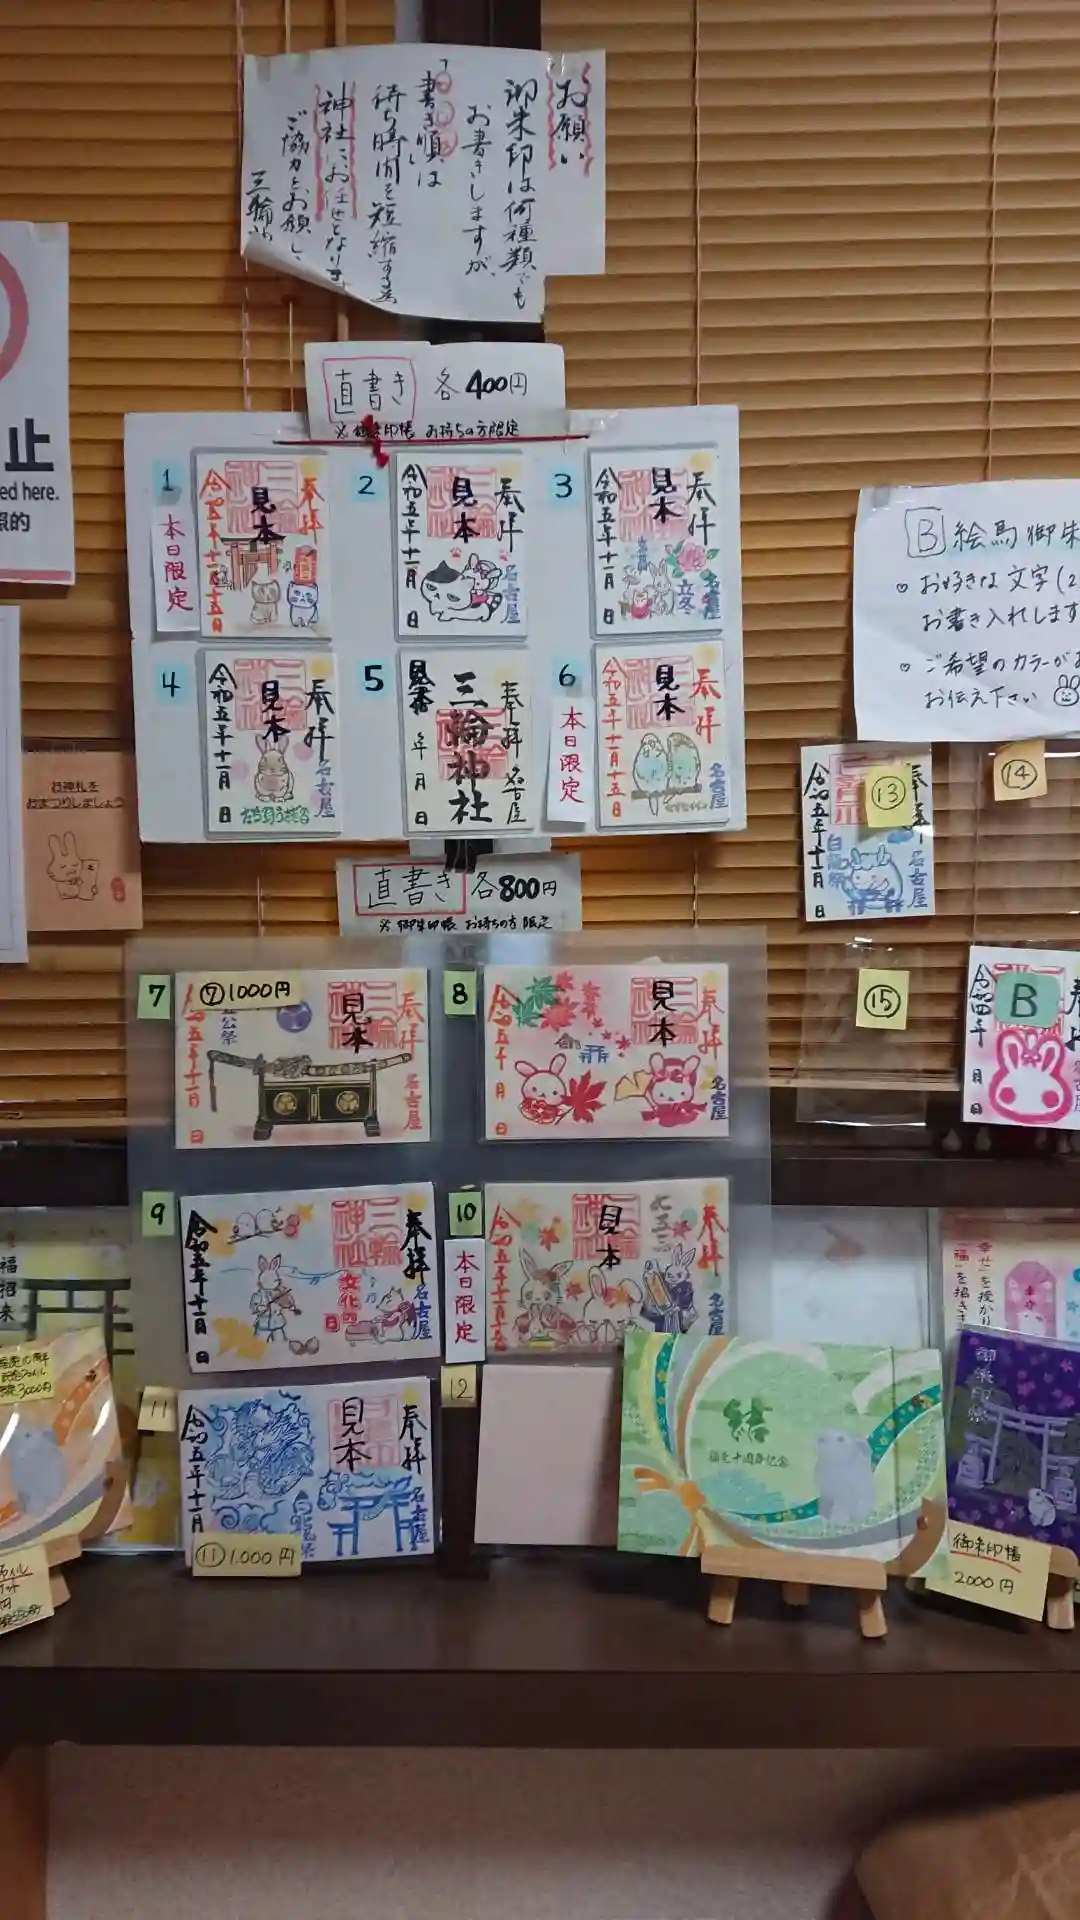 お願い
御朱印は何種類でも
お書きしますが、
「書き順」は
待ち時間を短縮する為
神社にお任せとなります
ご協力とお願い
三輪神
直書き 各400円
※御朱印帳 お持ちの方限定
1
本日限定
奉拝
見本
令和五年十一月十五日
2
奉拝
見本
名古屋
令和五年十一月 日
3
奉拝
見本
立冬
名古屋
令和五年十一月 日
4
奉拝
見本
名古屋
令和五年十一月 日
5
奉拝
名古屋
三輪神社
見本
年 月 日
6
本日限定
奉拝
見本
名古屋
令和五年十一月十五日
直書き 各800円
※御朱印帳 お持ちの方限定
7
⑦1000円
奉拝
見本
名古屋
令和五年十一月 日
8
奉拝
見本
名古屋
令和五年十一月 日
9
奉拝
三輪神社
名古屋
文化の日
令和五年十一月 日
10
本日限定
奉拝
七五三
見本
名古屋
11
奉拝
見本
名古屋
白龍祭
令和五年十一月
⑪1,000円
12
B 絵馬御朱
お好きな文字(2
お書き入れします
ご希望のカラーがあ
お伝え下さい
⑬
奉拝
名古屋
白龍祭
令和五年十一月 日
⑭
⑮
B
令和四年 月 日
止
ed here.
お神札を
おまつりしましょう
福招来
3000円
結
福兎十周年記念
幸せ」を授かり
「福」を招き
御朱印帳
御朱印帳
2000円